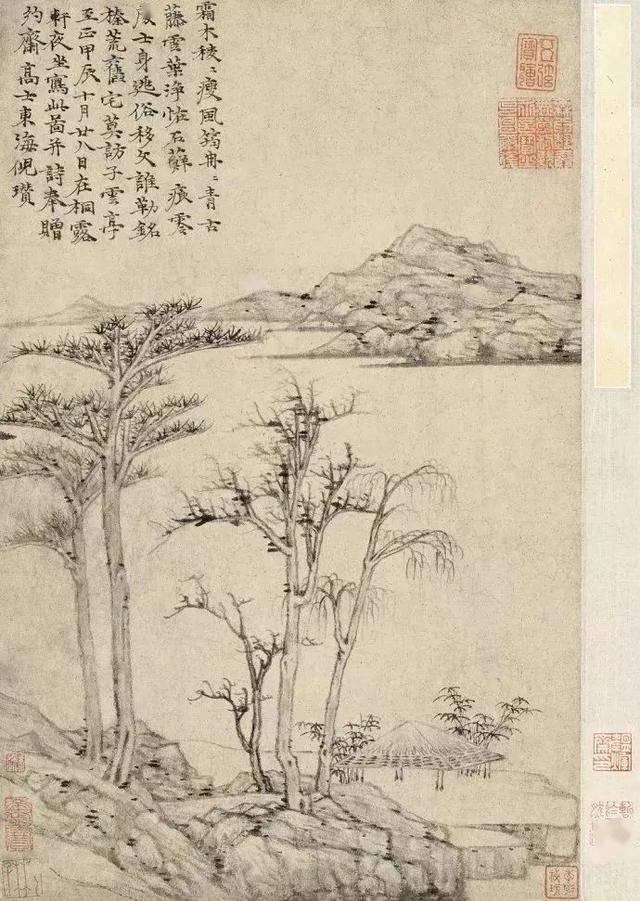 霜木稜〻瘦風筠冉〻青古
藤雲葉淨恠石蘚痕零
處士身逃俗移文誰勒銘
榛荒舊宅莫訪子雲亭
至正甲辰十月廿八日在桐露
軒夜坐寫此啚并詩奉贈
約齋高士東海倪瓚